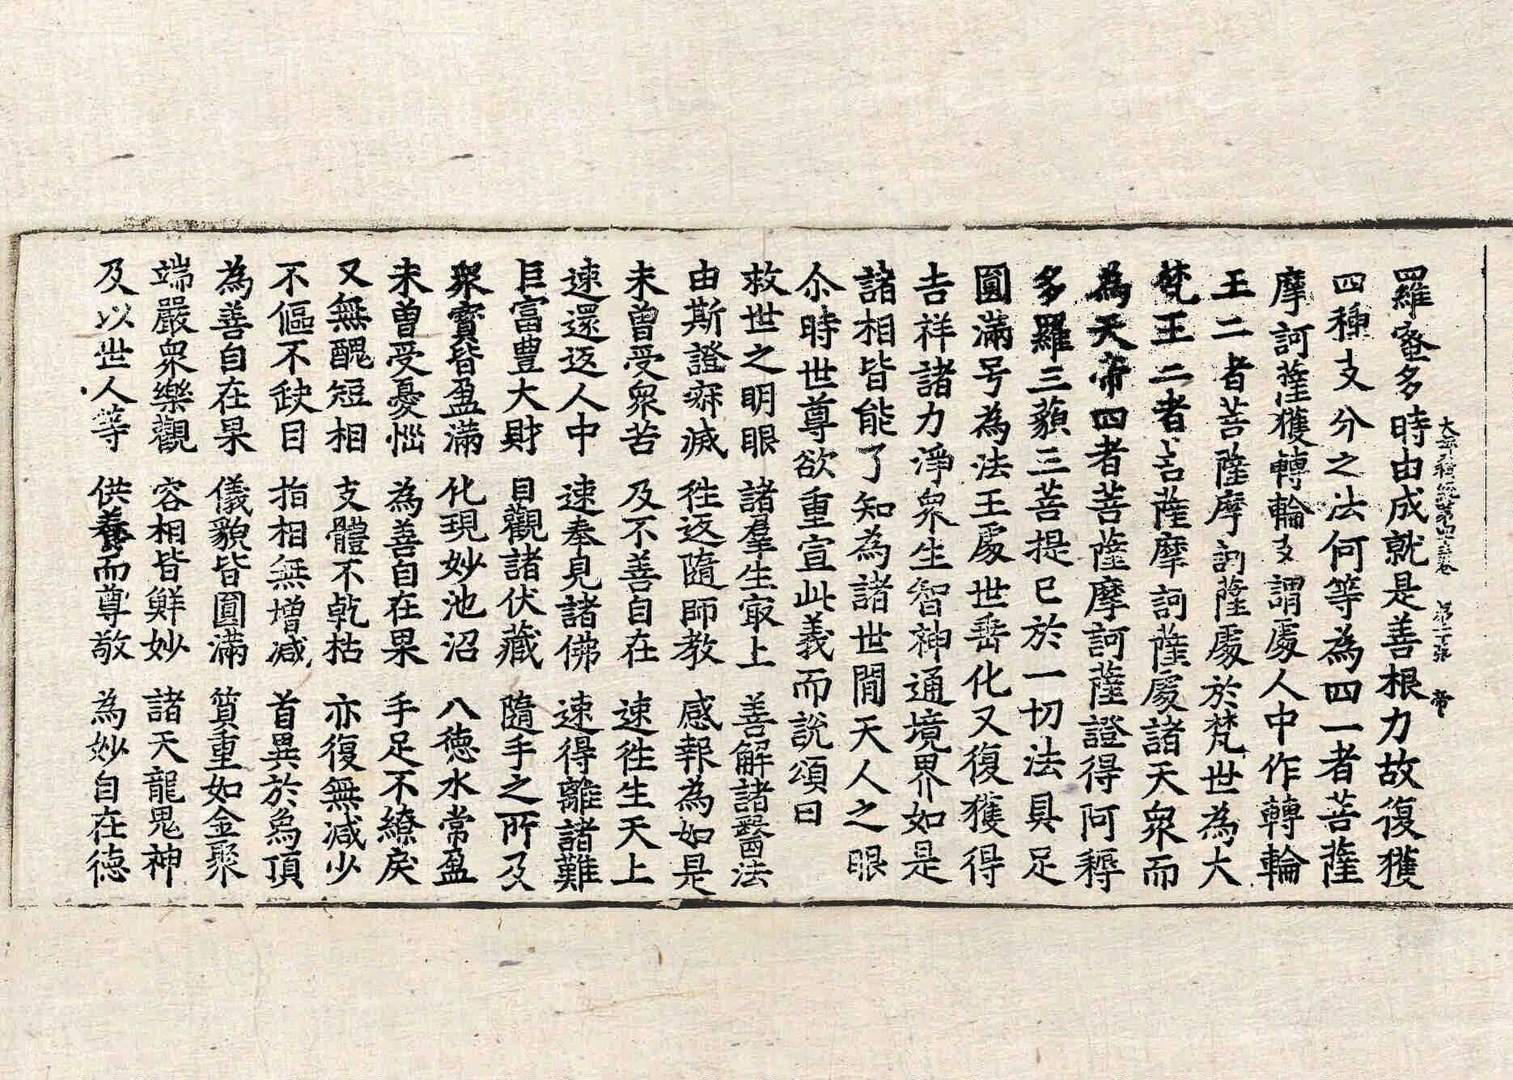 大寶積經第四十一卷 第二十張 帝
羅蜜多時由成就是善根力故復獲
四種支分之法何等為四一者菩薩
摩訶薩獲轉輪支謂處人中作轉輪
王二者菩薩摩訶薩處於梵世為大
梵王二者菩薩摩訶薩處諸天衆而
為天帝四者菩薩摩訶薩證得阿耨
多羅三藐三菩提已於一切法具足
圓滿号為法王處世垂化又復獲得
吉祥諸力淨衆生智神通境界如是
諸相皆能了知為諸世閒天人之眼
尒時世尊欲重宣此義而說頌曰
救世之明眼 諸羣生㝡上 善解諸醫法
由斯證寂滅 徃返隨師教 感報為如是
未曾受衆苦 及不善自在 速徃生天上
速還返人中 速奉見諸佛 速得離諸難
巨富豊大財 目觀諸伏藏 隨手之所及
衆寶皆盈滿 化現妙池沼 八德水常盈
未曾受憂惱 為善自在果 手足不繚戾
又無醜短相 支體不乾枯 亦復無減少
不傴不缺目 指相無增減 首異於烏頂
為善自在果 儀貌皆圓滿 質重如金聚
端嚴衆樂觀 容相皆鮮妙 諸天龍鬼神
及以世人等 供養而尊敬 為妙自在德